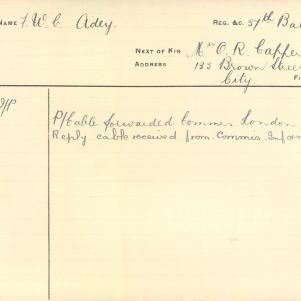 NAME F W. C Adey. REG. &C. 57th Bat
NEXT OF KIN Mrs O. R. Capper
ADDRESS 133 Brown Stree
City.
FI
P/Cable forwarded Commis London
Reply cable received from Commis. Infor